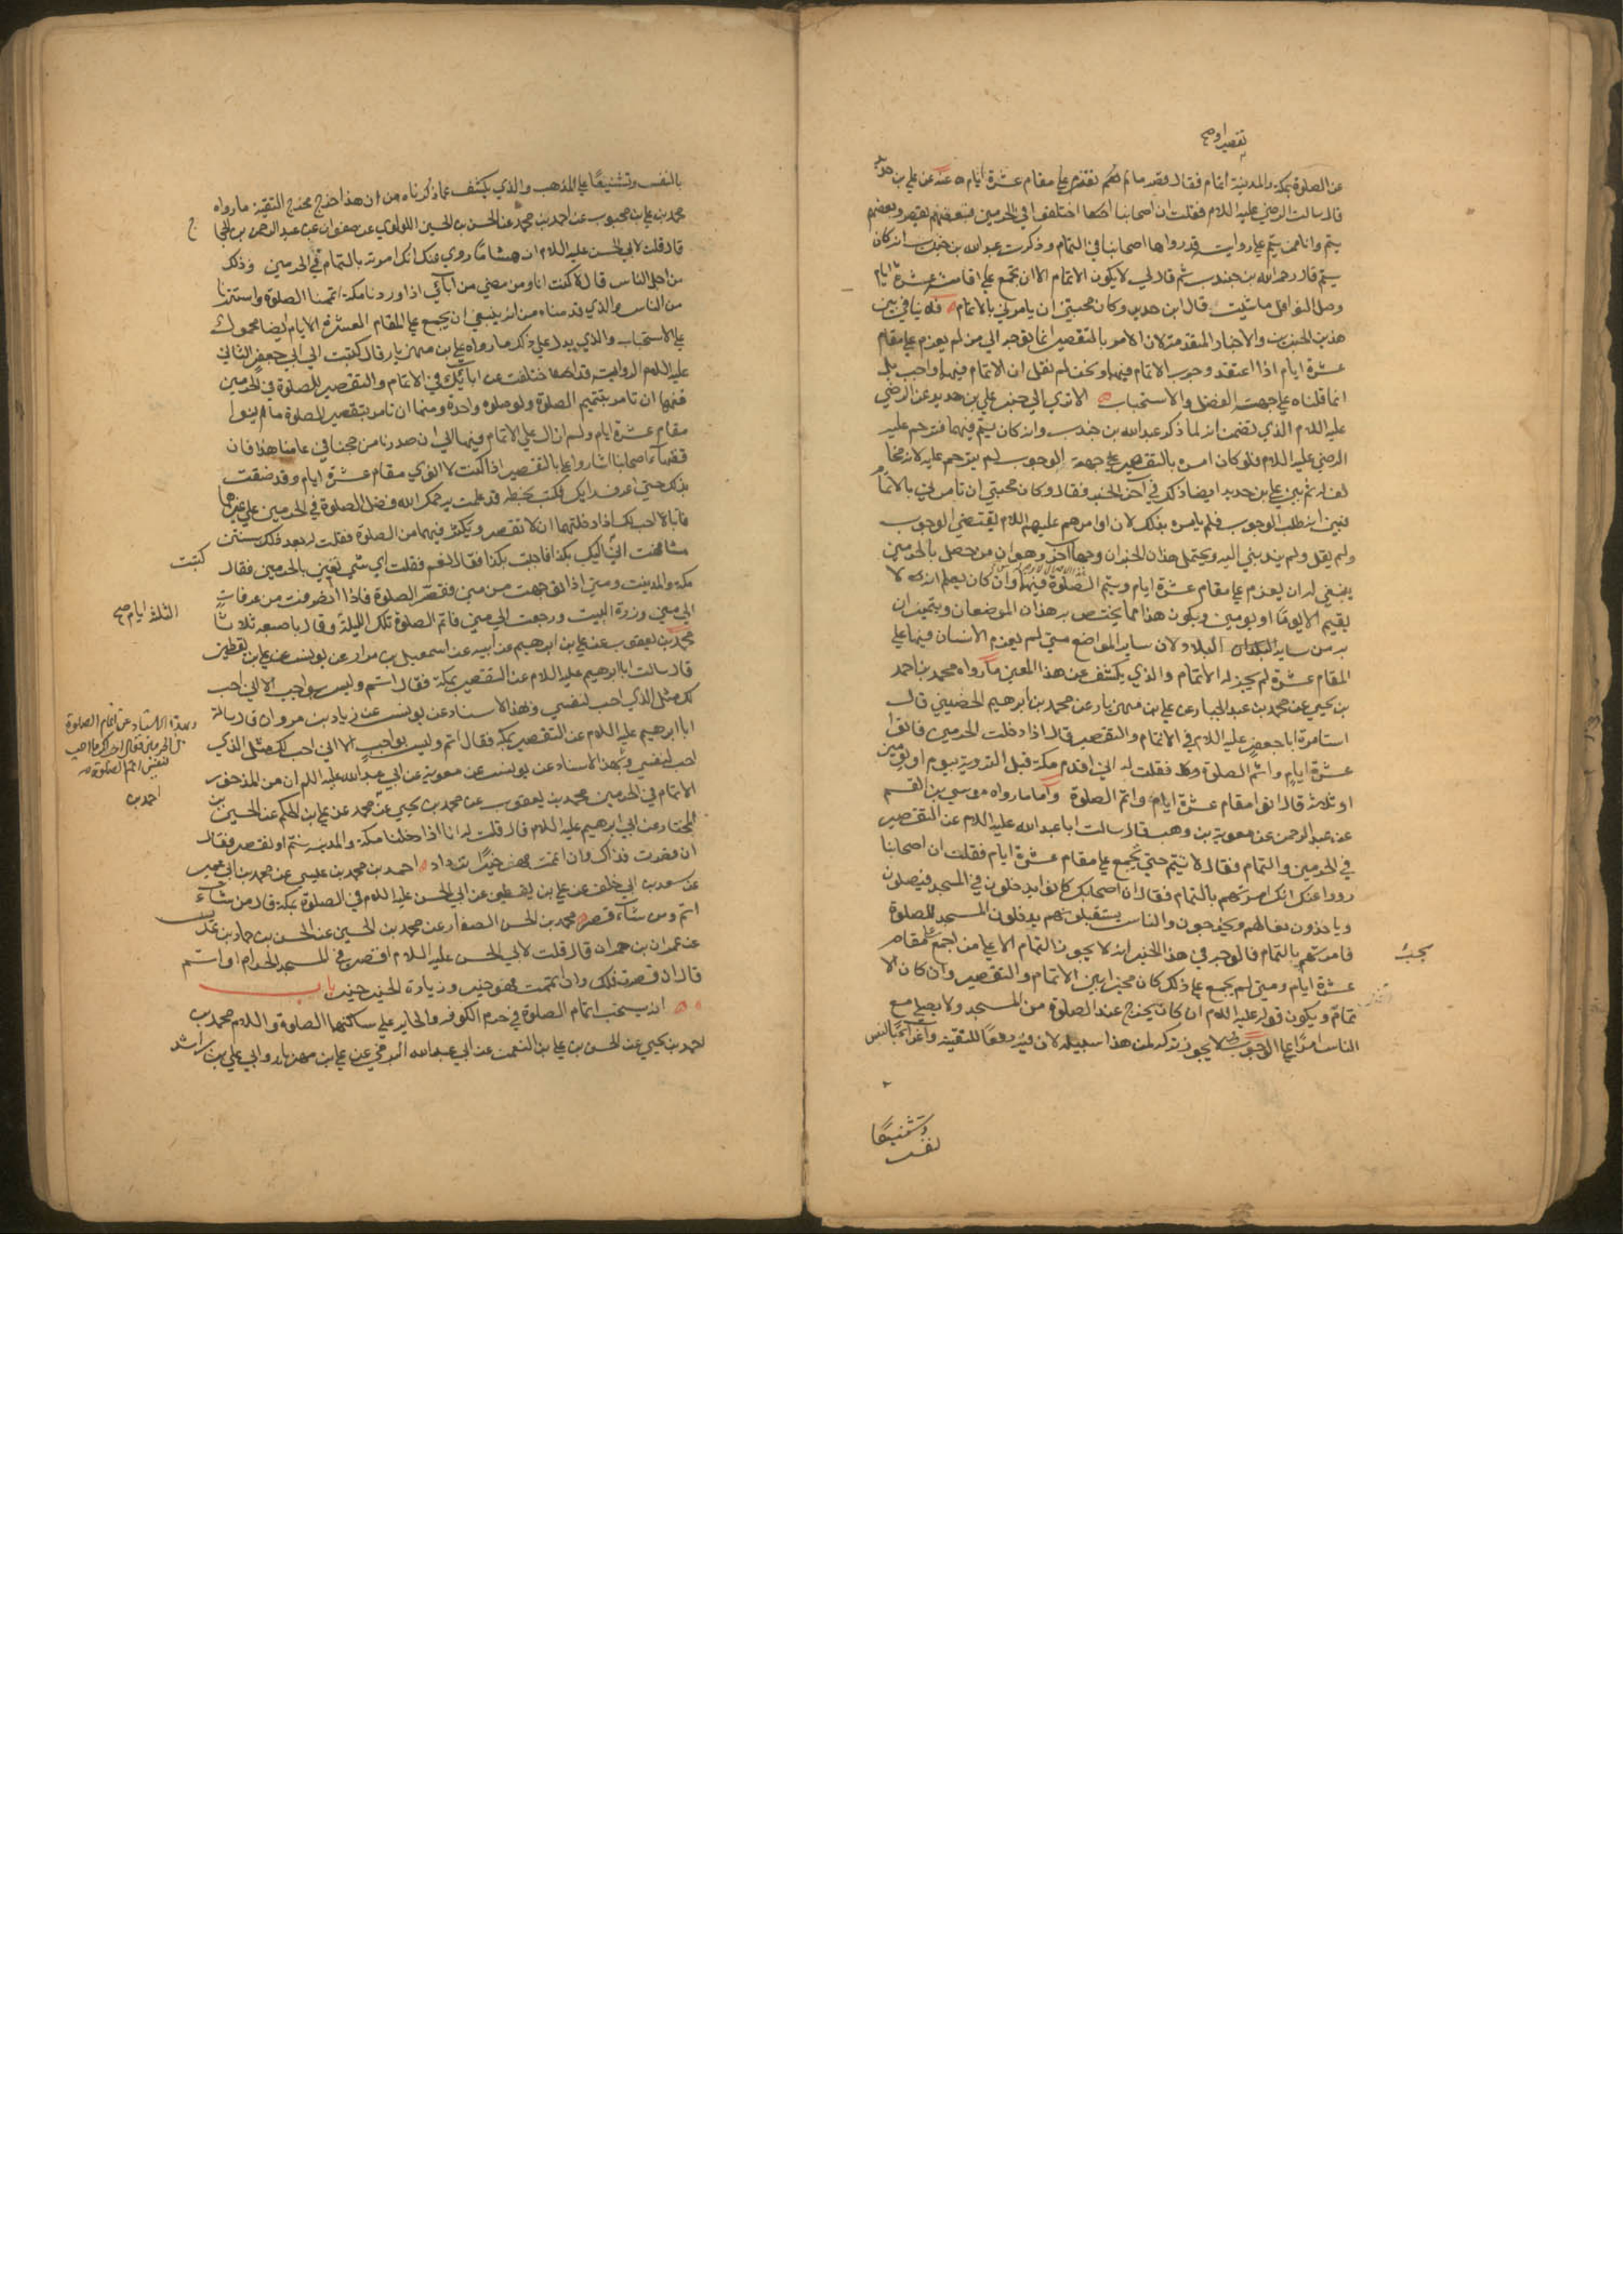 تقصير او صح
عن الصلوة بمكة والمدينة اتمام فقال قصر ما لم تعزم على مقام عشرة ايام ه عنه عن علي بن حديد
قال سالت الرضي عليه السلام فقلت ان اصحابنا اختلفوا في الحرمين فبعضهم يقصر وبعضهم
يتم وانا ممن يتم على رواية قد رواها اصحابنا في التمام وذكرت عبد الله بن جندب انه كان
يتم قال رحم الله بن جندب ثم قال لي لا يكون الاتمام الا ان تجمع على اقامة عشرة ايام
وصل النوافل ما شئت قال ابن حديد وكان محبتي ان يامرني بالاتمام فلا ينافي بين
هذين الخبرين والاخبار المتقدمة لان الامر بالتقصير انما يتوجه الى من لم يعزم على مقام
عشرة ايام اذا اعتقد وجوب الاتمام فيهما ونحن لم نقل ان الاتمام فيهما واجب بل
انما قلناه على جهة الفضل والاستحباب الا ترى الى خبر علي بن حديد عن الرضي
عليه السلام الذي تضمن انه لما ذكر عبد الله بن جندب وانه كان يتم فيهما فترحم عليه
الرضي عليه السلام فلو كان امره بالتقصير على جهة الوجوب لم يترحم عليه لانه مخا
لف له ثم بين علي بن حديد ايضا ذلك في آخر الخبر فقال وكان محبتي ان تامرني بالاتمام
فبين انه طلب الوجوب فلم يامره بذلك لان اوامرهم عليهم السلام يقتضي الوجوب
ولم يقل ولم يندبني اليه ويحتمل هذان الخبران وجها آخر وهو ان من حصل بالحرمين
ينبغي له ان يعزم على مقام عشرة ايام ويتم الصلوة فيهما وان كان يعلم انه لا
يقيم الا يوما او يومين ويكون هذا مما يختص به هذان الموضعان ويتميزان
به من ساير البلاد لان ساير المواضع متى لم يعزم الانسان فيها على
المقام عشرة لم يجز له الاتمام والذي يكشف عن هذا المعنى ما رواه محمد بن احمد
بن يحيى عن محمد بن عبد الجبار عن علي بن مهزيار عن محمد بن ابرهيم الحضيني قال
استامرت ابا جعفر عليه السلام في الاتمام والتقصير قال اذا دخلت الحرمين فانو
عشرة ايام واتم الصلوة فقلت له اني اقدم مكة قبل التروية بيوم او يومين
او ثلثة قال انو مقام عشرة ايام واتم الصلوة واما ما رواه موسى بن القسم
عن عبد الرحمن عن معوية بن وهب قال سالت ابا عبد الله عليه السلام عن التقصير
في الحرمين والتمام فقال لا تتم حتى تجمع على مقام عشرة ايام فقلت ان اصحابنا
رووا عنك انك امرتهم بالتمام فقال ان اصحابك كانوا يدخلون في المسجد فيصلون
وياخذون نعالهم ويخرجون والناس يستقبلونهم يدخلون المسجد للصلوة
فامرتهم بالتمام فالوجه في هذا الخبر انه لا يجوز التمام الا على من اجمع على مقام
يجب
عشرة ايام ومتى لم يجمع على ذلك كان مخيرا بين الاتمام والتقصير وان كان الا
تمام ويكون قوله عليه السلام ان كان يخرج عند الصلوة من المسجد ولا يصلي مع
الناس امرا على الوجوب لا يجوز تركه لمن هذا سبيله لان فيه رفعا للتقية
وتشنيعا
بالنفس وتشنيعا على المذهب والذي يكشف عما ذكرناه من ان هذا خرج مخرج التقية ما رواه
محمد بن علي بن محبوب عن احمد بن محمد عن الحسن بن الحسين اللولوي عن صفوان عن عبد الرحمن بن الحجا
ج
قال قلت لابي الحسن عليه السلام ان هشاما روى عنك انك امرته بالتمام في الحرمين وذلك
من اجل الناس قال لا كنت انا ومن مضى من آبائي اذا وردنا مكة اتممنا الصلوة واستترنا
من الناس والذي قدمناه من انه ينبغي ان يجمع على المقام العشرة الايام ايضا محمول
على الاستحباب والذي يدل على ذلك ما رواه علي بن مهزيار قال كتبت الى ابي جعفر الثاني
عليه السلام الرواية قد اختلفت عن آبائك في الاتمام والتقصير للصلوة في الحرمين
فمنها ان تامر بتتميم الصلوة ولو صلوة واحدة ومنها ان تامر بتقصير الصلوة ما لم ينوا
مقام عشرة ايام ولم ازل على الاتمام فيهما الى ان صدرنا من حجنا في عامنا هذا فان
فقهاء اصحابنا اشاروا علي بالتقصير اذا كنت لا انوي مقام عشرة ايام وقد ضقت
بذلك حتى اعرف رايك فكتب بخطه قد علمت يرحمك الله فضل الصلوة في الحرمين على غيرها
فانا لا احب لك اذا دخلتهما ان لا تقصر وتكثر فيهما من الصلوة فقلت له بعد ذلك بسنتين
مشافهة اني اليك بكذا فاجبت بكذا فقال نعم فقلت اي شي تعني بالحرمين فقال
كتبت
مكة والمدينة ومتى اذا توجهت من منى فقصر الصلوة فاذا انصرفت من عرفات
الى منى وزرت البيت ورجعت الى منى فاتم الصلوة تلك وقال باصبعه ثلاثا
الثلثة ايام صح
محمد بن يعقوب عن علي بن ابرهيم عن ابيه عن اسمعيل بن مرار عن يونس عن علي بن يقطين
قال سالت ابا ابرهيم عليه السلام عن التقصير بمكة فقال اتم وليس بواجب الا اني احب
لك مثل الذي احب لنفسي وبهذا الاسناد عن يونس عن زياد بن مروان قال سالت
ابا ابرهيم عليه السلام عن التقصير بمكة فقال اتم وليس بواجب الا اني احب لك مثل الذي
احب لنفسي وبهذا الاسناد عن يونس عن معوية عن ابي عبد الله عليه السلام ان من المذخور
الاتمام في الحرمين محمد بن يعقوب عن محمد بن يحيى عن محمد عن علي بن الحكم عن الحسين بن
احمد بن
المختار عن ابي ابرهيم عليه السلام قال قلت له انا اذا دخلنا مكة والمدينة نتم او نقصر فقال
ان قصرت فذاك وان اتممت فهو خير تزداد احمد بن محمد بن عيسى عن محمد بن ابي عمير
عن سعد بن ابي خلف عن علي بن يقطين عن ابي الحسن عليه السلام في الصلوة بمكة قال من شاء
اتم ومن شاء قصر محمد بن الحسن الصفار عن محمد بن الحسين عن الحسن بن حماد بن عديس
عن عمران بن حمران قال قلت لابي الحسن عليه السلام اقصر في المسجد الحرام او اتم
قال ان قصرت فلك وان اتممت فهو خير وزيادة الخير خير باب
انه يستحب اتمام الصلوة في حرم الكوفة والحاير على ساكنهما الصلوة والسلام محمد بن
احمد بن يحيى عن الحسن بن علي بن النعمن عن ابي عبد الله البرقي عن علي بن مهزيار وابي علي بن راشد